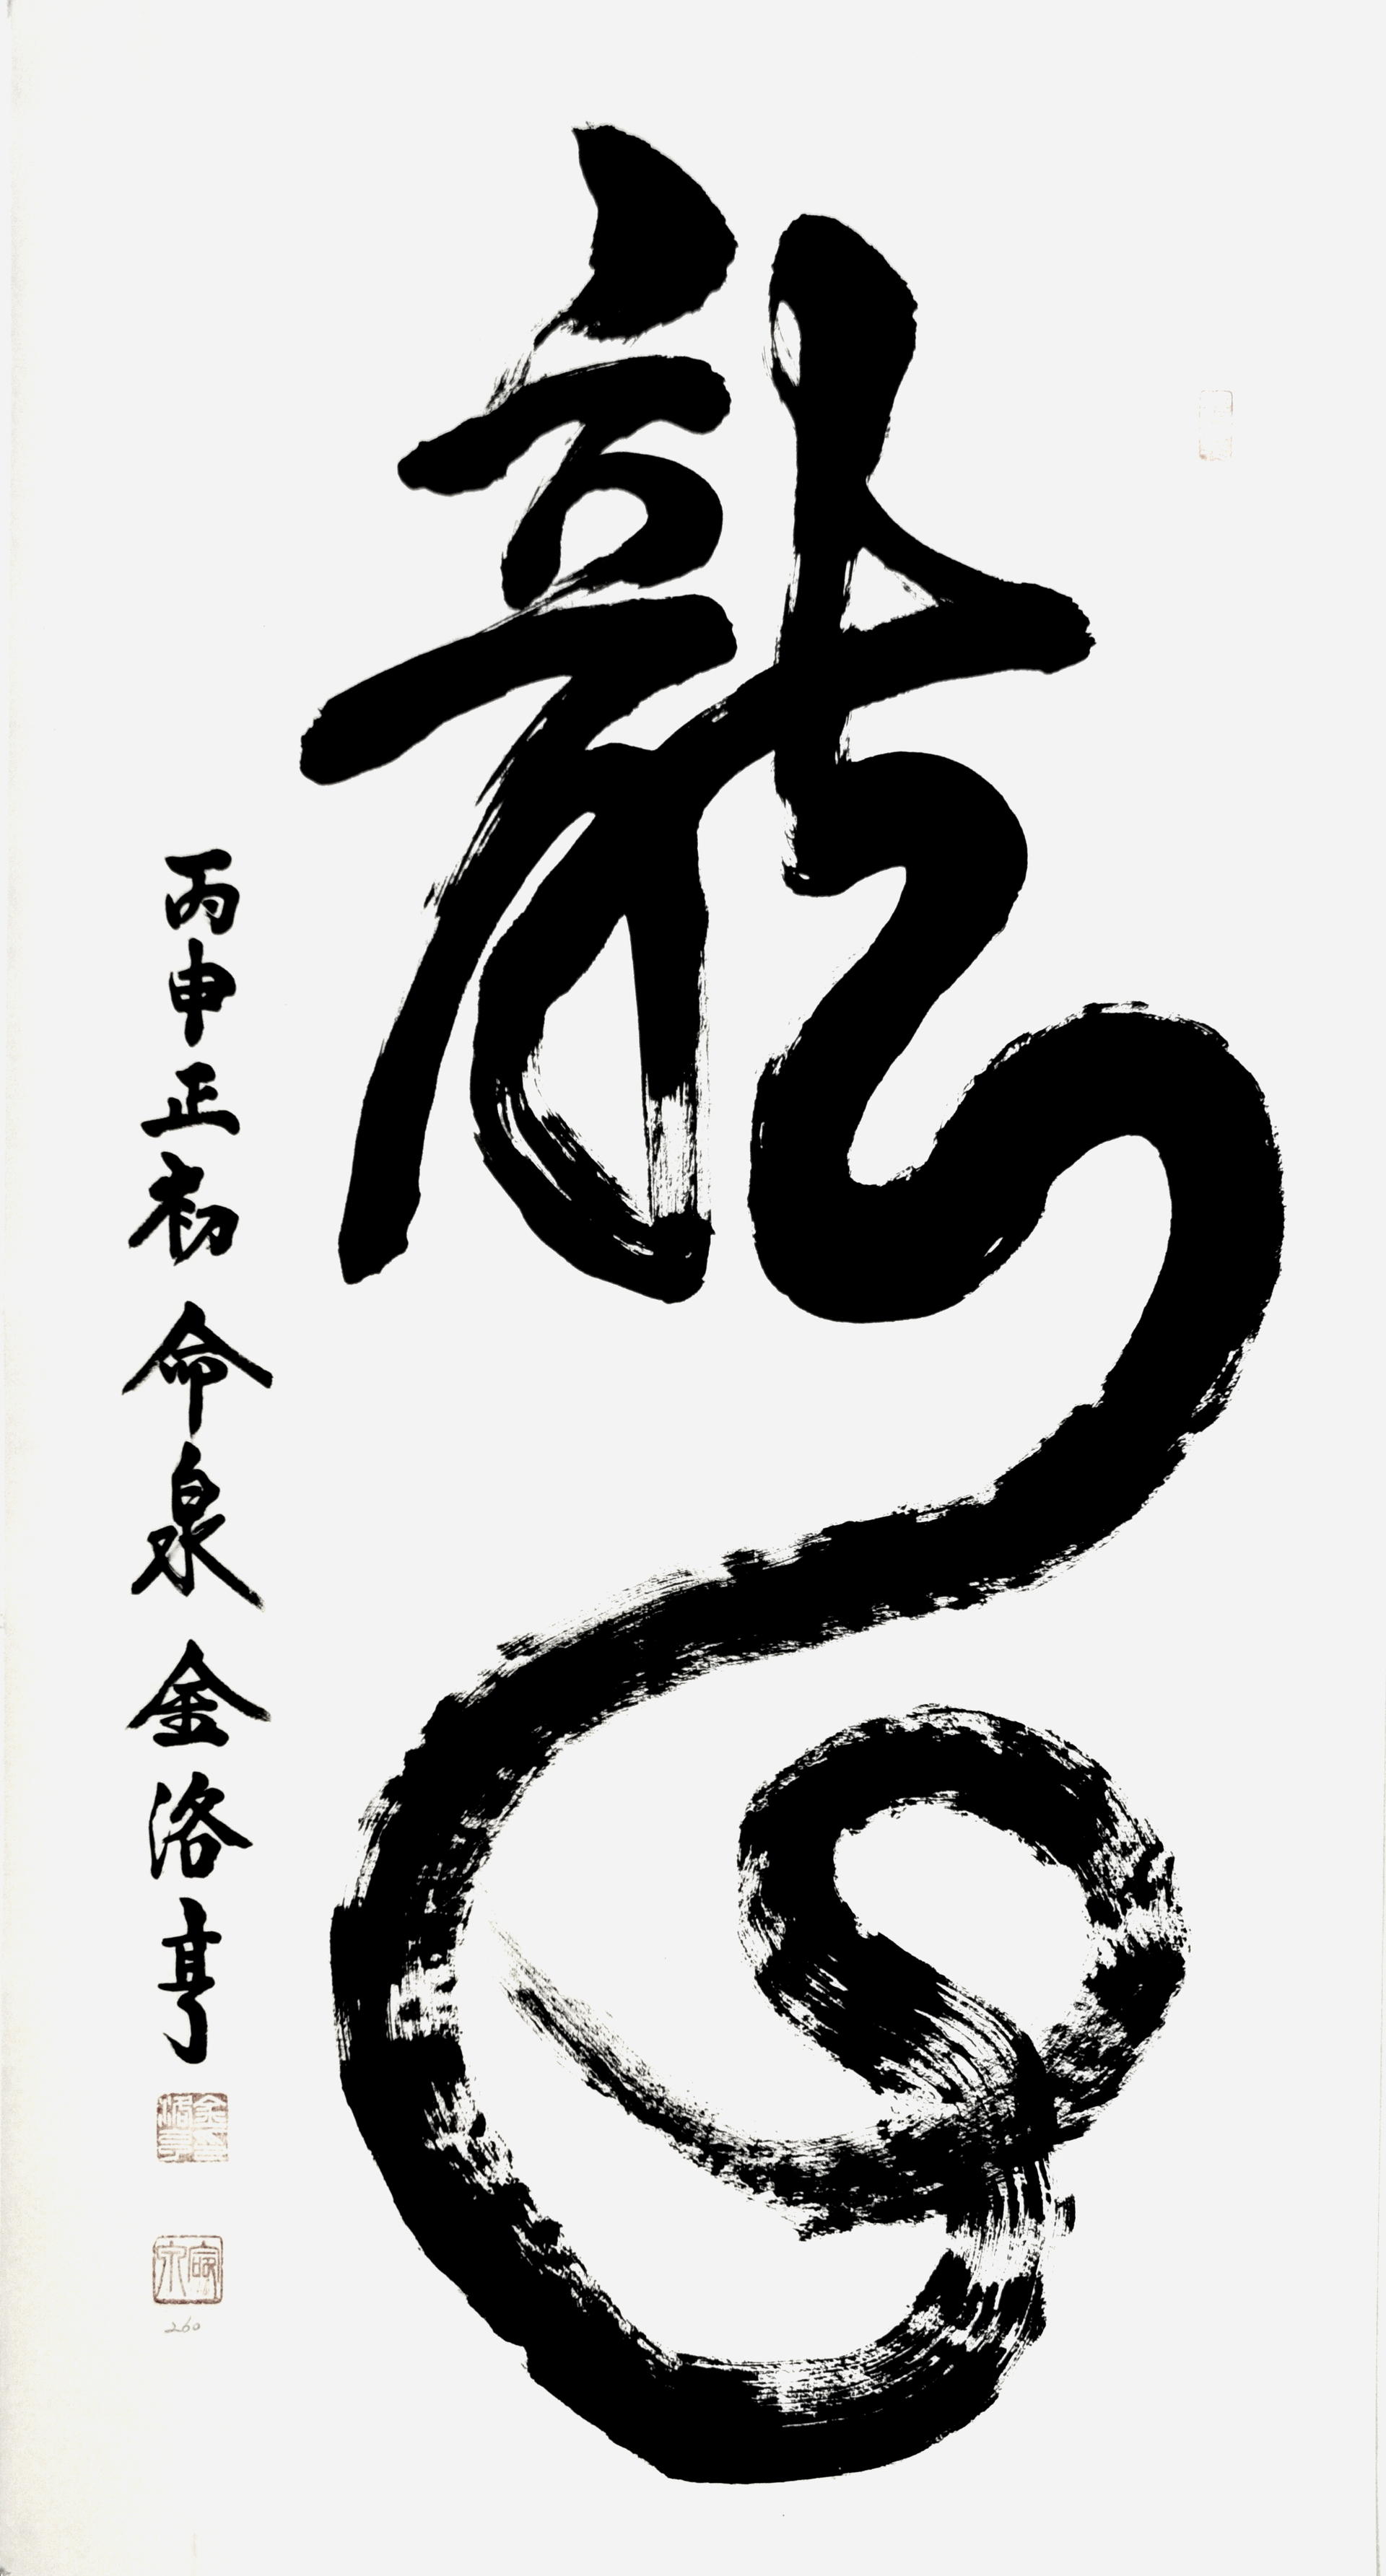 龍
丙申正初 命泉 金洛亨
260